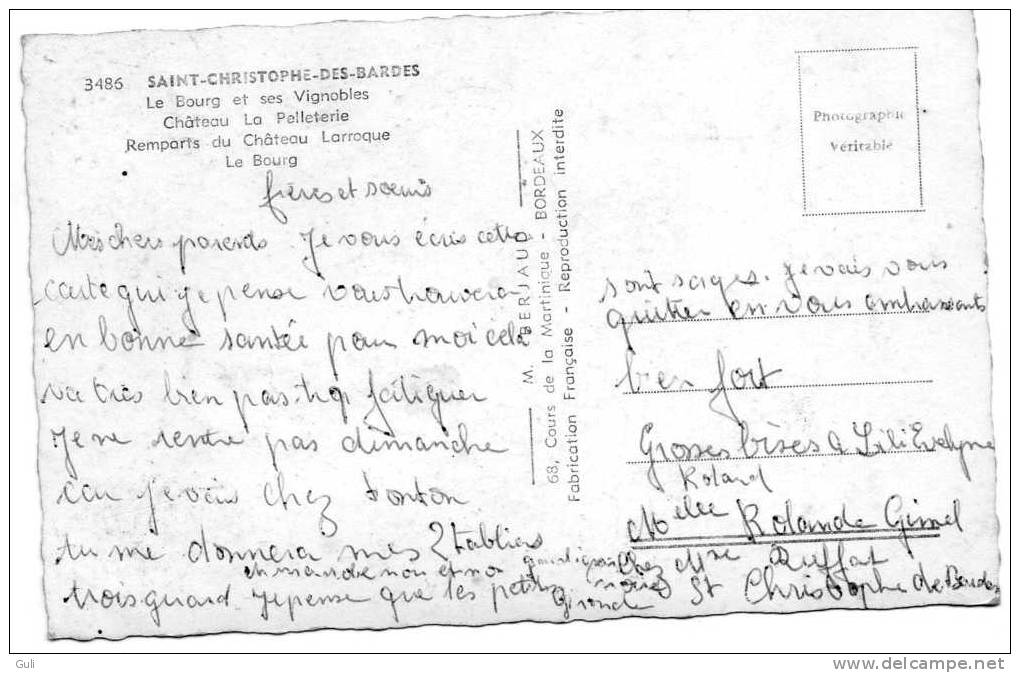 3486 SAINT-CHRISTOPHE-DES-BARDES
Le Bourg et ses Vignobles
Château La Pelleterie
Remparts du Château Larroque
Le Bourg
frères et sœurs
Mes chers parents. Je vous écris cette
carte qui je pense vous trouvera
en bonne santée pour moi cela
va très bien pas trop fatiguer
Je ne rentre pas dimanche
car je vais chez tonton
tu me donnera mes 2 tabliers
trois quard. Je pense que les petits
M. BERJAUD
68, Cours de la Martinique - BORDEAUX
Fabrication Française - Reproduction interdite
Photographie
Véritable
sont sages. je vais vous
quitter en vous embrassants
bien fort
Grosses bises a Lili Evelyne
Roland
Melle Rolande Gimel
chez Mme Ruffat
St Christophe de Bardes
Gironde
Guli
www.delcampe.net